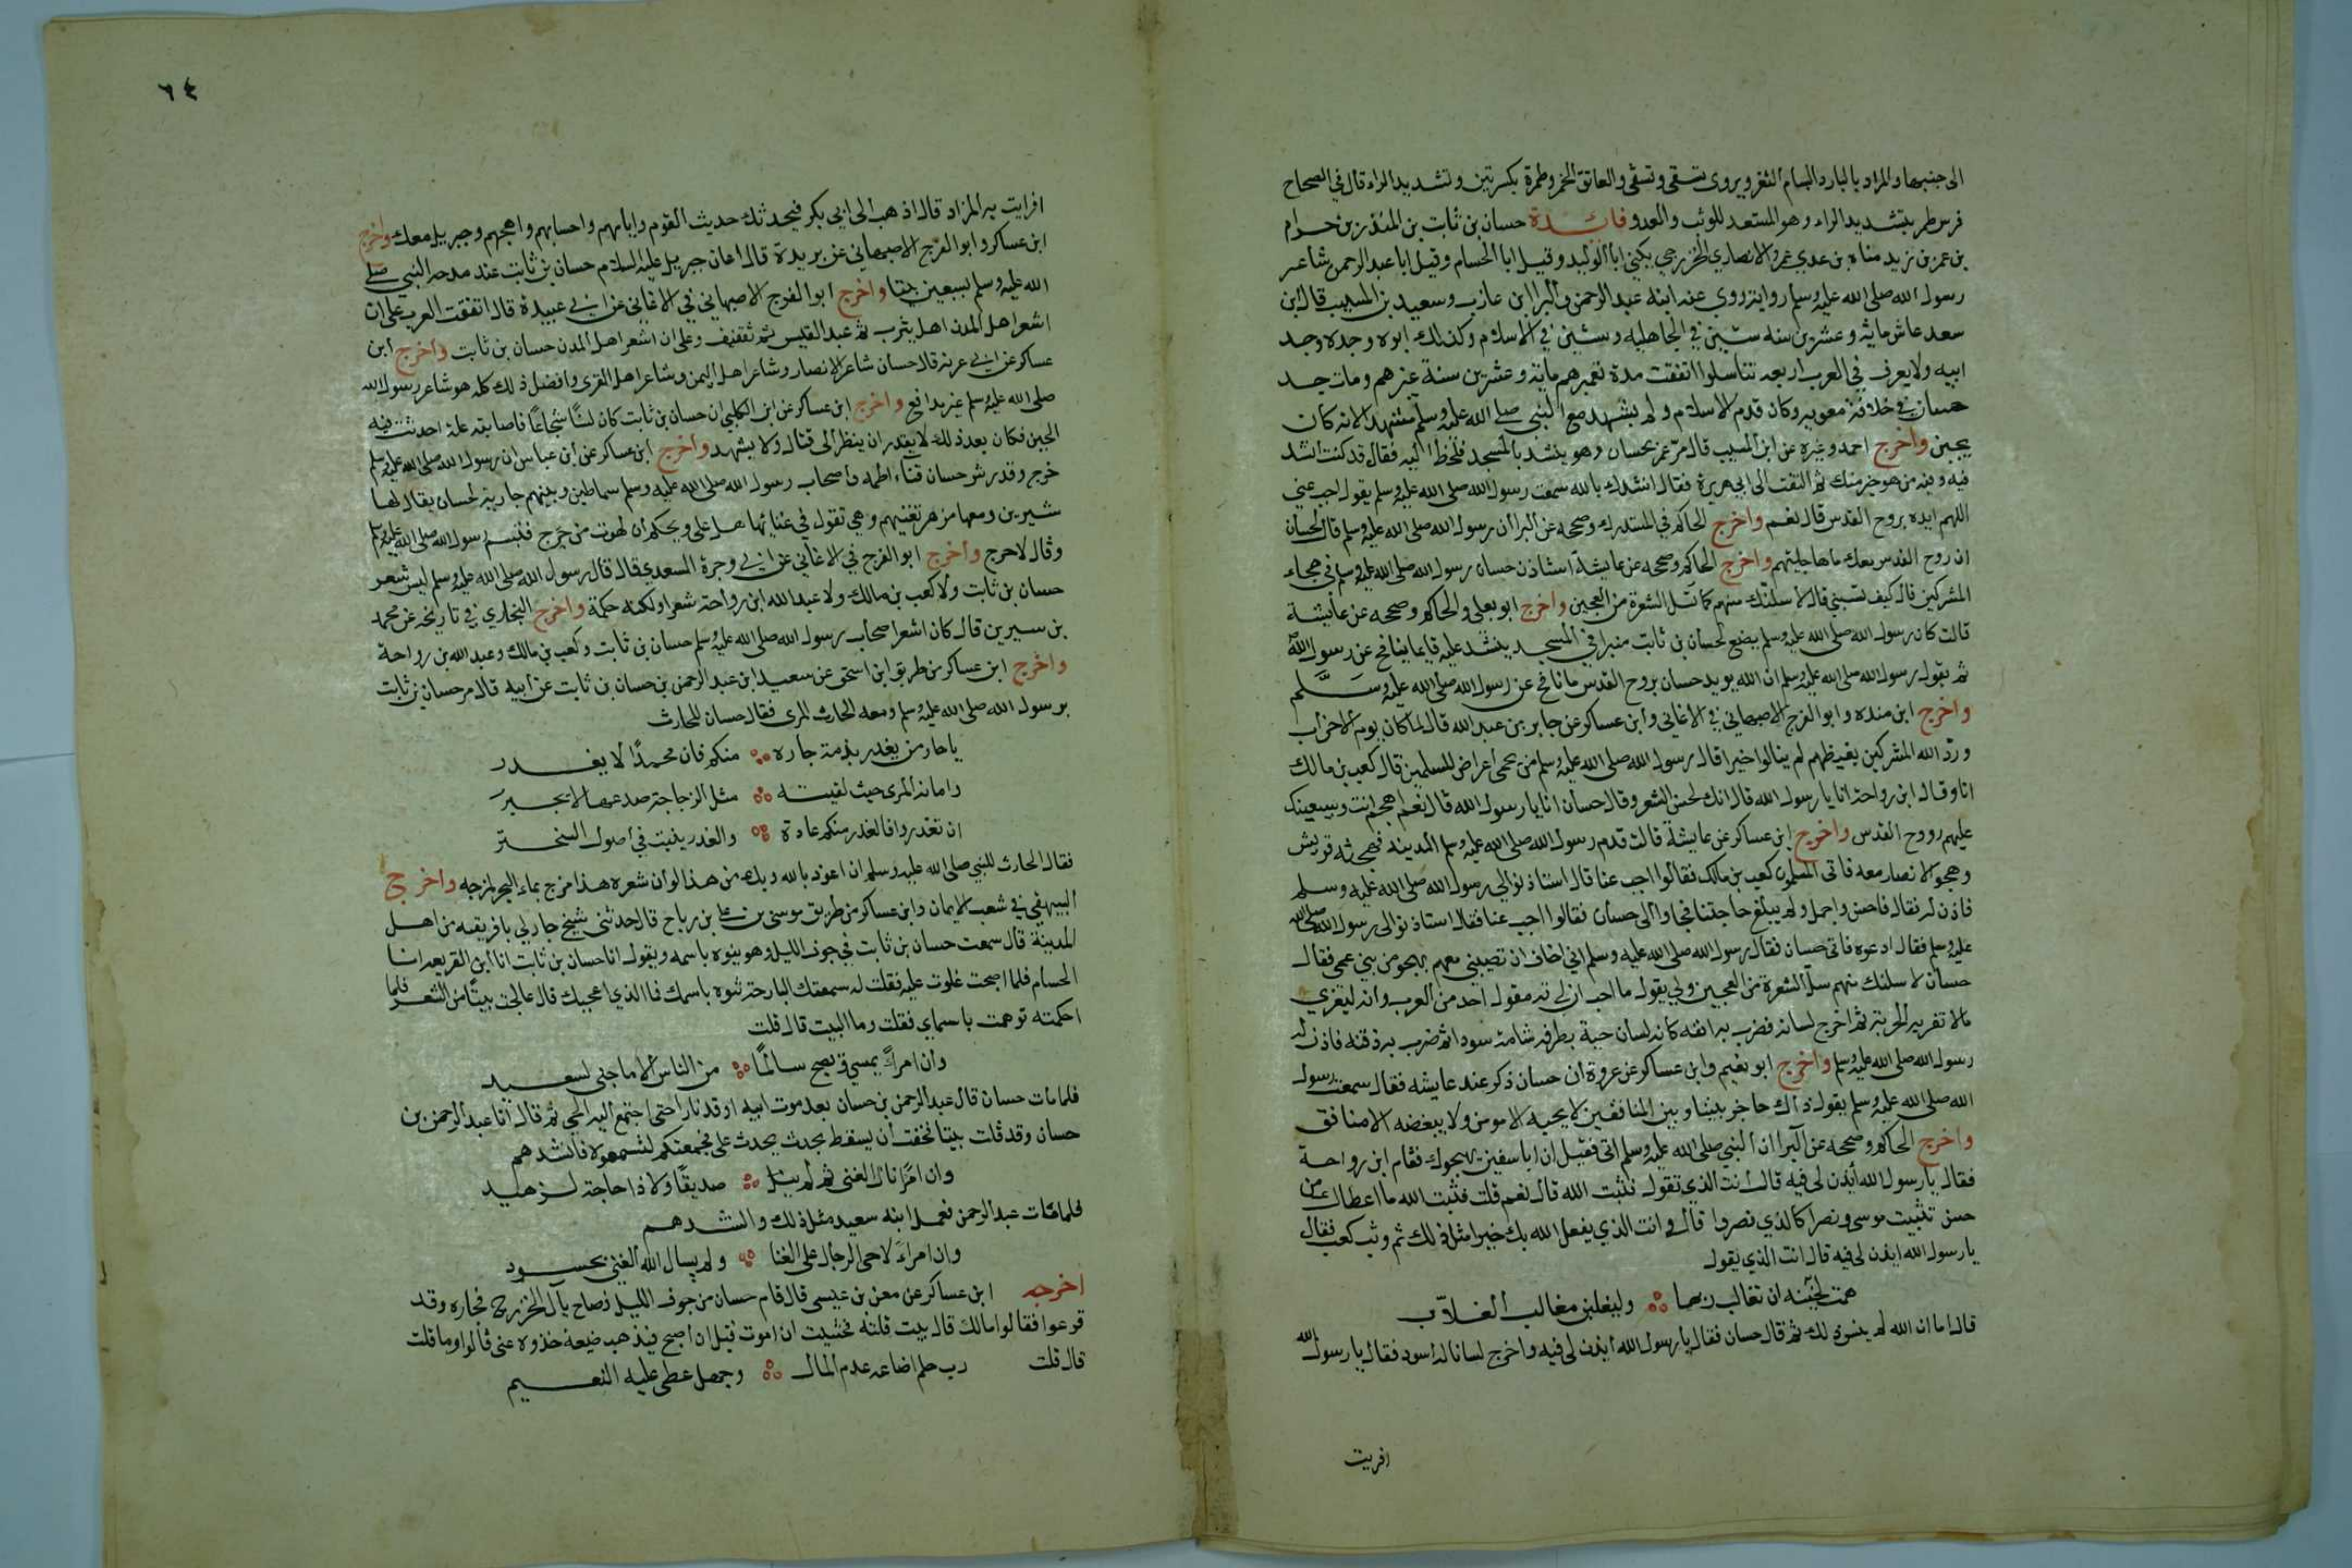 الى جنبها والمراد بالبارد البسام الثغر ويروى تسقى وتشفى والعاتق الخمر وطمرة بكسرتين وتشديد الراء قال في الصحاح
فرس طمر بتشديد الراء وهو المستعد للوثب والعدو فائدة حسان بن ثابت بن المنذر بن حرام
بن عمر بن زيد مناه بن عدي بن عمرو الانصاري الخزرجي يكنى ابا الوليد وقيل ابا الحسام وقيل ابا عبد الرحمن شاعر
رسول الله صلى الله عليه وسلم روايته روى عنه ابنه عبد الرحمن والبرا ابن عازب وسعيد بن المسيب قال ابن
سعد عاش مائة وعشرين سنه ستين في الجاهليه وستين في الاسلام وكذلك ابوه وجده وجد
ابيه ولا يعرف في العرب اربعه تناسلوا اتفقت مدة تعميرهم مائة وعشرين سنة غيرهم ومات
حسان في خلافة معويه وكان قدم الاسلام ولم يشهد مع النبي صلى الله عليه وسلم مشهدا لانه كان
يجبن واخرج احمد وغيره عن ابن المسيب قال مر عمر بحسان وهو ينشد بالمسجد فلحظ اليه فقال قد كنت انشد
فيه وفيه من هو خير منك ثم التفت الى ابي هريرة فقال انشدك بالله سمعت رسول الله صلى الله عليه وسلم يقول اجب عني
اللهم ايده بروح القدس قال نعم واخرج الحاكم في المستدرك وصححه عن البرا ان رسول الله صلى الله عليه وسلم قال لحسان
ان روح القدس معك ما هاجيتهم واخرج الحاكم وصححه عن عايشة استاذن حسان رسول الله صلى الله عليه وسلم في هجاء
المشركين قال كيف بنسبي قال لاسلنك منهم كما تسل الشعرة من العجين واخرج ابو يعلى والحاكم وصححه عن عايشة
قالت كان رسول الله صلى الله عليه وسلم يضع لحسان بن ثابت منبرا في المسجد ينشد عليه قايما ينافح عن رسول الله
ثم يقول رسول الله صلى الله عليه وسلم ان الله يويد حسان بروح القدس ما نافح عن رسول الله صلى الله عليه وسلم
واخرج ابن منده وابو الفرج الاصبهاني في الاغاني وابن عساكر عن جابر بن عبد الله قال لما كان يوم الاحزاب
وردّ الله المشركين بغيظهم لم ينالوا خيرا قال رسول الله صلى الله عليه وسلم من يحمى اعراض المسلمين قال كعب بن مالك
انا وقال ابن رواحة انا يا رسول الله قال انك لحسن الشعر وقال حسان انا يا رسول الله قال نعم اهجهم انت وسيعينك
عليهم روح القدس واخرج ابن عساكر عن عايشة قالت قدم رسول الله صلى الله عليه وسلم المدينه فهجته قريش
وهجوا الانصار معه فاتى المسلمون كعب بن مالك فقالوا اجب عنا قال استاذنوا لي رسول الله صلى الله عليه وسلم
فاذن له فقال فاحسن واجمل ولم يبلغ حاجتنا فجاوا الى حسان فقالوا اجب عنا فقال استاذنوا لي رسول الله صلى الله
عليه وسلم فقال ادعوه فاتى حسان فقال رسول الله صلى الله عليه وسلم اني اخاف ان تصيبني معهم بهجو من بني عمي فقال
حسان لاسلنك منهم سل الشعرة من العجين ولي يقول ما احب ان لي به مقول احد من العرب وانه ليفري
ما لا تفريه الحربة ثم اخرج لسانه فضرب به انفه كانه لسان حية بطرفه شامة سودا ثم ضرب به ذقنه فاذن له
رسول الله صلى الله عليه وسلم واخرج ابو نعيم وابن عساكر عن عروة ان حسان ذكر عند عايشه فقال سمعت رسول
الله صلى الله عليه وسلم يقول ذاك حاجز بيننا وبين المنافقين لا يحبه الا مومن ولا يبغضه الا منافق
واخرج الحاكم وصححه عن البرا ان النبي صلى الله عليه وسلم اتى فقيل ان ابا سفين يهجوك فقام ابن رواحة
فقال يا رسول الله أيذن لي فيه قال انت الذي تقول نثبت الله قال نعم قلت فثبت الله ما اعطاك من
حسن تثبيت موسى ونصرا كالذي نصروا قال وانت الذي يفعل الله بك خيرا مثل ذلك ثم وثب كعب فقال
يا رسول الله ايذن لي فيه قال انت الذي يقول
همت سخينه ان تغالب ربها وليغلبن مغالب الغلاّب
قال اما ان الله لم ينس ذلك ثم قال حسان فقال يا رسول الله أيذن لي فيه واخرج لسانا له اسود فقال يا رسول الله
افريت
٦٤
افرايت به المزاد قال اذهب الى ابي بكر فيحدثك حديث القوم وايامهم واحسابهم واهجهم وجبريل معك واخرج
ابن عساكر وابو الفرج الاصبهاني عن بريدة قال اعان جبريل عليه السلام حسان بن ثابت عند مدحه النبي صلى
الله عليه وسلم بسبعين بيتا واخرج ابو الفرج الاصبهاني في الاغاني عن ابي عبيدة قال اتفقت العرب على ان
اشعر اهل المدن اهل يثرب ثم عبد القيس ثم ثقيف وعلى ان اشعر اهل المدن حسان بن ثابت واخرج ابن
عساكر عن ابي عرنه قال حسان شاعر الانصار وشاعر اهل اليمن وشاعر اهل القرى وافضل ذلك كله هو شاعر رسول الله
صلى الله عليه وسلم غير مدافع واخرج ابن عساكر عن ابن الكلبي ان حسان بن ثابت كان لسنًا شجاعًا فاصابته علة احدثت فيه
الجبن فكان بعد ذلك لا يقدر ان ينظر الى قتال ولا يشهد واخرج ابن عساكر عن ابن عباس ان رسول الله صلى الله عليه وسلم
خرج وقد رش حسان فناء اطمه واصحاب رسول الله صلى الله عليه وسلم سماطين وبينهم جارية لحسان يقال لها
شيرين ومعها مزهر تغنيهم وهي تقول في غنائها هل على ويحكم ان لهوت من حرج فتبسم رسول الله صلى الله عليه وسلم
وقال لا حرج واخرج ابو الفرج في الاغاني عن ابي وجرة السعدي قال قال رسول الله صلى الله عليه وسلم ليس شعر
حسان بن ثابت ولا كعب بن مالك ولا عبد الله ابن رواحة شعرا ولكنه حكمة واخرج البخاري في تاريخه عن محمد
بن سيرين قال كان اشعر اصحاب رسول الله صلى الله عليه وسلم حسان بن ثابت وكعب بن مالك وعبد الله بن رواحة
واخرج ابن عساكر من طريق ابن اسحق عن سعيد ابن عبد الرحمن بن حسان بن ثابت عن ابيه قال مر حسان بن ثابت
برسول الله صلى الله عليه وسلم ومعه الحارث المرى فقال حسان للحارث
يا حار من يغدر بذمة جاره منكم فان محمدًا لا يغدر
وامانة المرى حيث لقيته مثل الزجاجة صدعها لا يجبر
ان تغدروا فالغدر منكم عادة والغدر ينبت في اصول السخبر
فقال الحارث للنبي صلى الله عليه وسلم ان اعوذ بالله وبك من هذا لو ان شعره هذا مزج بماء البحر لمزجه واخرج
البيهقي في شعب الايمان وابن عساكر من طريق موسى بن علي بن رباح قال حدثني شيخ جار لي بافريقيه من اهل
المدينة قال سمعت حسان بن ثابت في جوف الليل وهو ينوه باسمه ويقول انا حسان بن ثابت انا ابن القريعه انا
الحسام فلما اصبحت غدوت عليه فقلت له سمعتك البارحة تنوه باسمك فما الذي اعجبك قال عالجت بيتًا من الشعر فلما
احكمته نوهت باسماي فقلت وما البيت قال قلت
وان امرأً يمسي ويصبح سالمًا من الناس الا ما جنى لسعيد
فلما مات حسان قال عبد الرحمن بن حسان بعد موت ابيه اوقد نارا حتى اجتمع اليه الحي ثم قال انا عبد الرحمن بن
حسان وقد قلت بيتا فخفت ان يسقط بحدث يحدث علي فجمعتكم لتسمعوه فانشدهم
وان امرًا نال الغنى ثم لم ينل صديقًا ولا ذا حاجة لزهيد
فلما مات عبد الرحمن فعمل ابنه سعيد مثل ذلك وانشدهم
وان امراءً لاحى الرجال على الغنا ولم يسال الله الغنى لحسود
اخرجه ابن عساكر عن معن بن عيسى قال قام حسان من جوف الليل فصاح يآل الخزرج فجاوه وقد
فزعوا فقالوا مالك قال بيت قلته فخشيت ان اموت قبل ان اصبح فيذهب ضيعة خذوه عنى قالوا وما قلت
قال قلت رب حلم اضاعه عدم المال وجهل غطى عليه النعيم